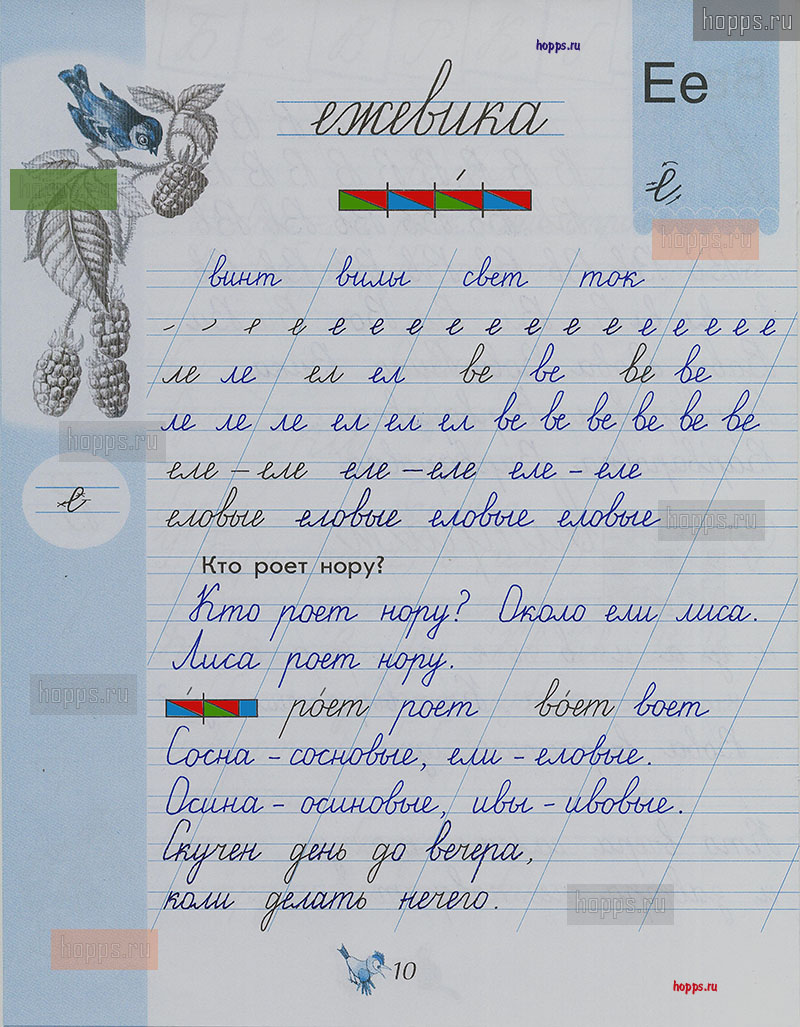 hopps.ru
hopps.ru
Ее
ежевика
е
hopps.ru
hopps.ru
винт вилы свет ток
е е е е е е е е е е е е е
ле ле ел ел ве ве ве ве
ле ле ле ел ел ел ве ве ве ве ве ве
hopps.ru
еле – еле еле – еле еле – еле
е
еловые еловые еловые еловые
hopps.ru
Кто роет нору?
Кто роет нору? Около ели лиса.
Лиса роет нору.
hopps.ru
ро́ет роет во́ет воет
Сосна – сосновые, ели – еловые.
Осина – осиновые, ивы – ивовые.
Скучен день до вечера,
коли делать нечего.
hopps.ru
hopps.ru
10
hopps.ru